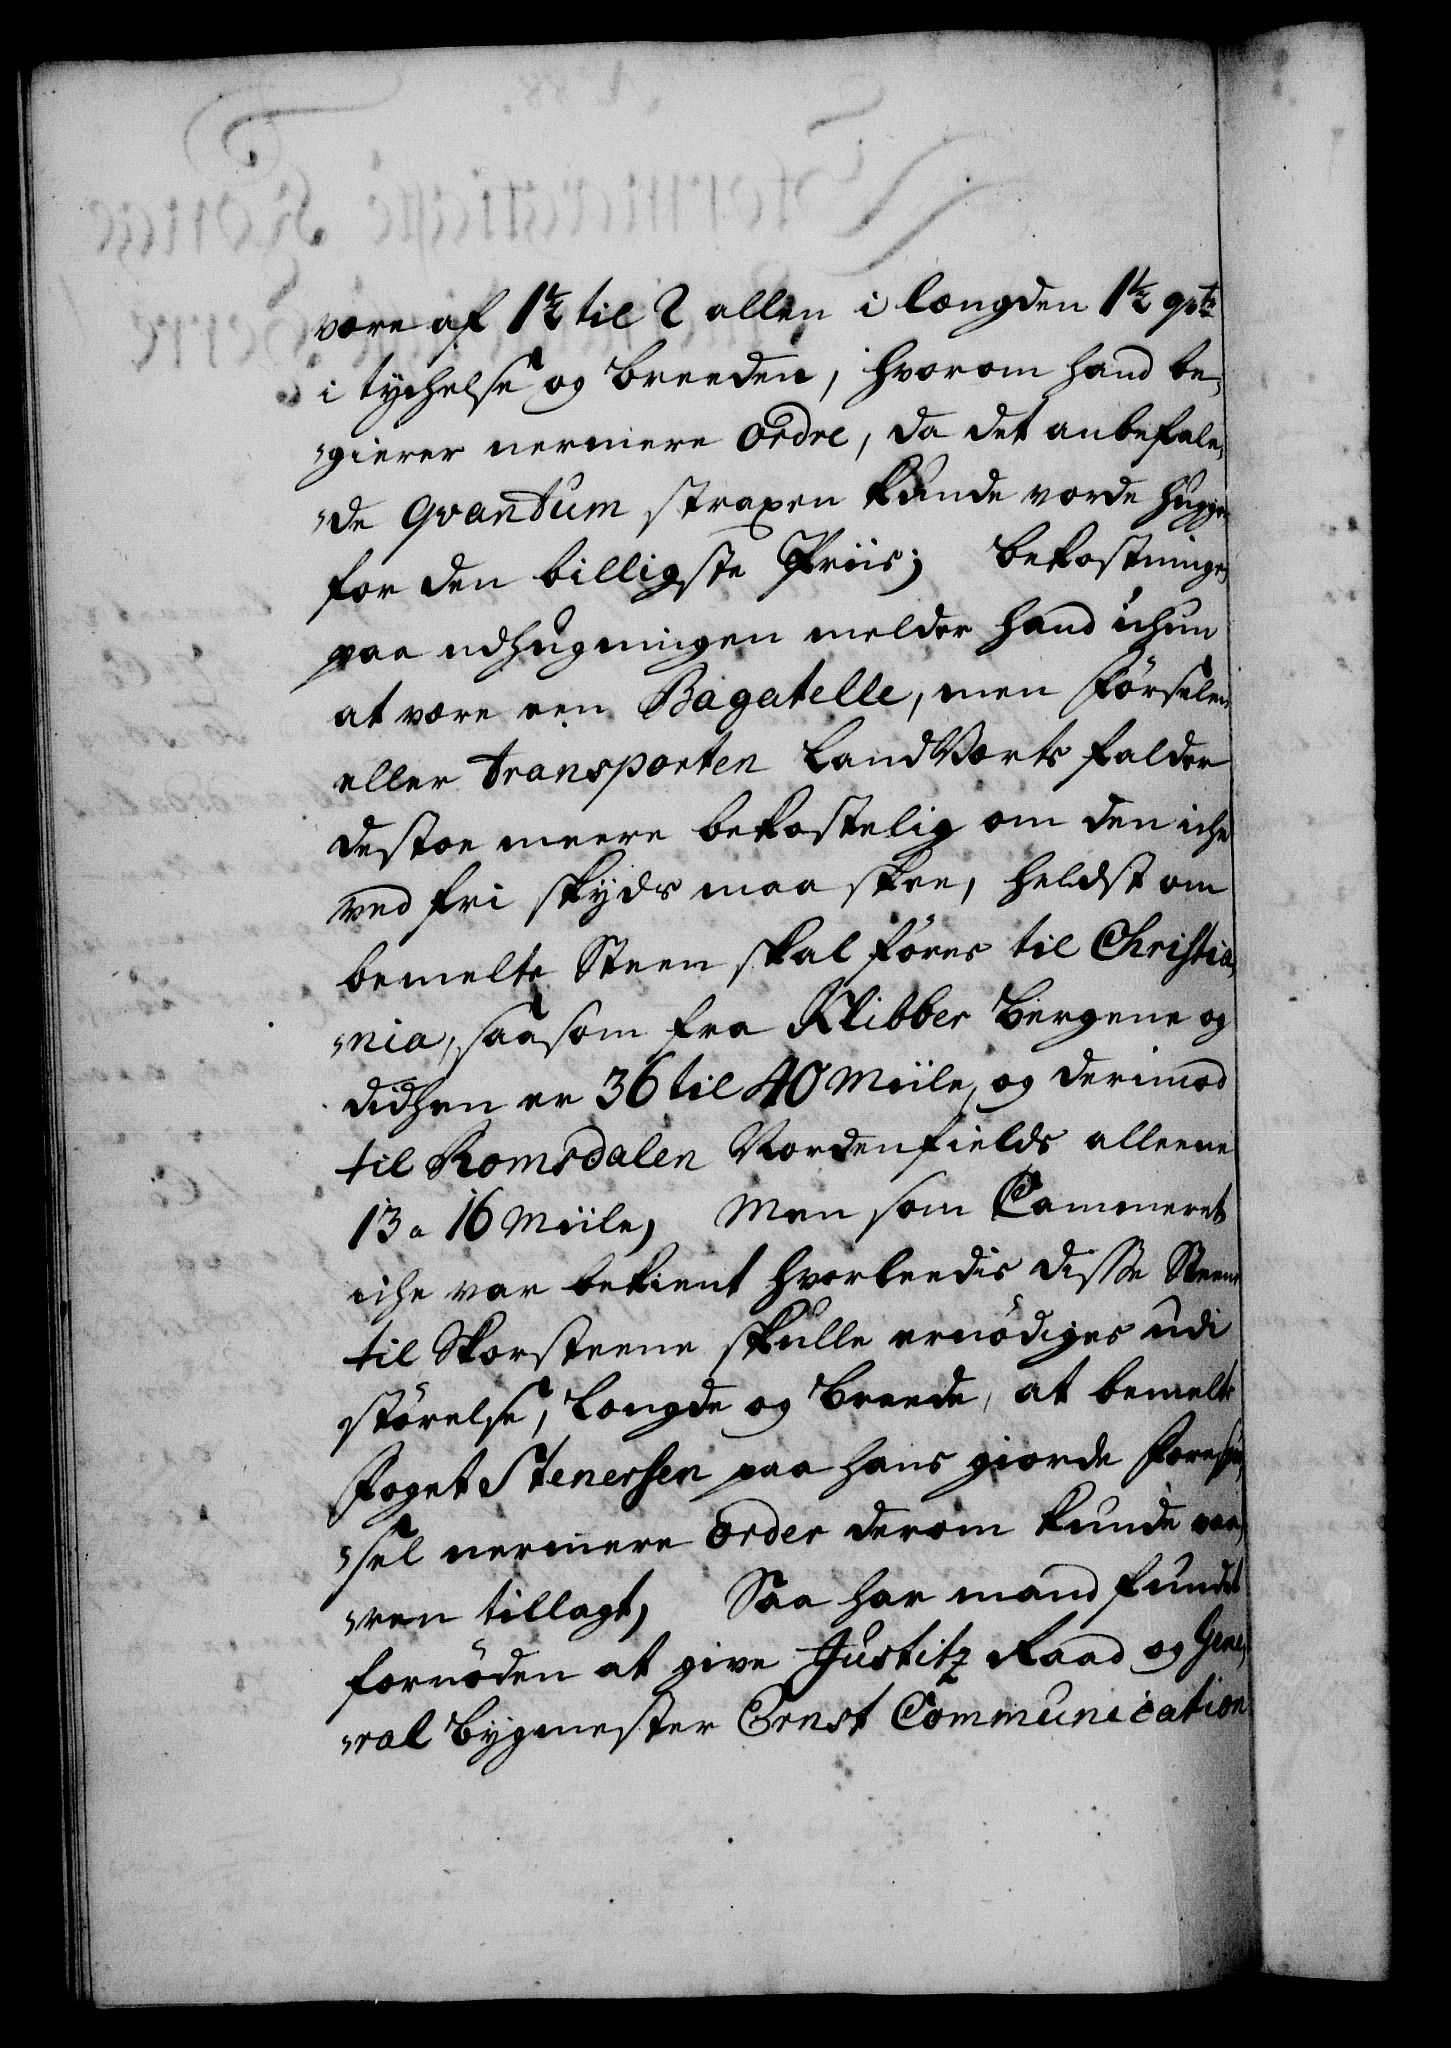 være af 1½ til 2 allen i længden 1½ qvtr
i tychelse og breeden, hvorom hand be¬
„gierer nermere ordre, da det anbefale¬
„de qvantum straxen kunde vorde huggen
for den billigste Priis; bekostningen
paa udhugningen melder hand ichun
at være een Bagatelle, men förselen
eller transporten landværts falder
destoe meere bekostelig om den iche
ved fri skyds maa skee, heldst om
bemelte Steen skal föres til Christia¬
„nia, saasom fra Klibber Bergene og
didhen er 36 til 40 Miile, og derimod
til Romsdalen Nordenfields alleene
13 a 16 Miile, Men som Cammeret
iche var bekient hvorleedis disse Steene
til Skorsteene skulle ernödiges udi
störelse, Længde og Breede, at bemelte
Foget Stenersen paa hans giorde Forespör¬
„sel nermere order derom kunde væ¬
„ren tillagt, Saa har mand fundet
fornöden at give Justitz Raad og Gene¬
„ral Bygmester Ernst Communication